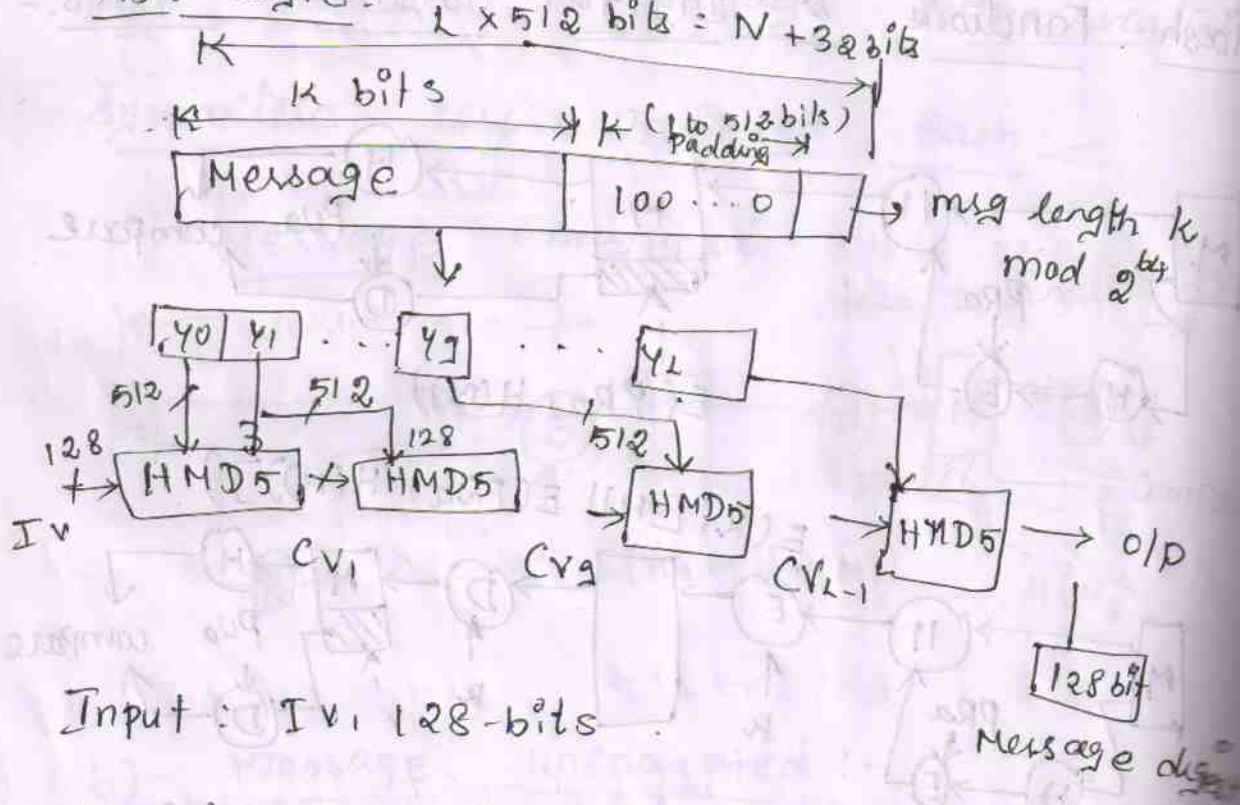 L × 512 bits = N + 32 bits
K bits
K (1 to 512 bits)
Padding
Message
100 ... 0
msg length K
mod 2^64
Y0 Y1 ... Yg ... YL
512
512
128
128
512
HMD5
HMD5
HMD5
HMD5
O/P
IV
CV1
CVg
CVL-1
128 bit
Input : IV, 128-bits
Message